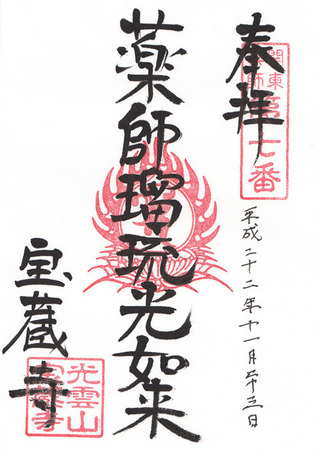 奉拝
関東
薬師
第七番
平成二十二年十一月二十三日
薬師瑠琉光如来
宝蔵寺
光雲山
宝蔵寺